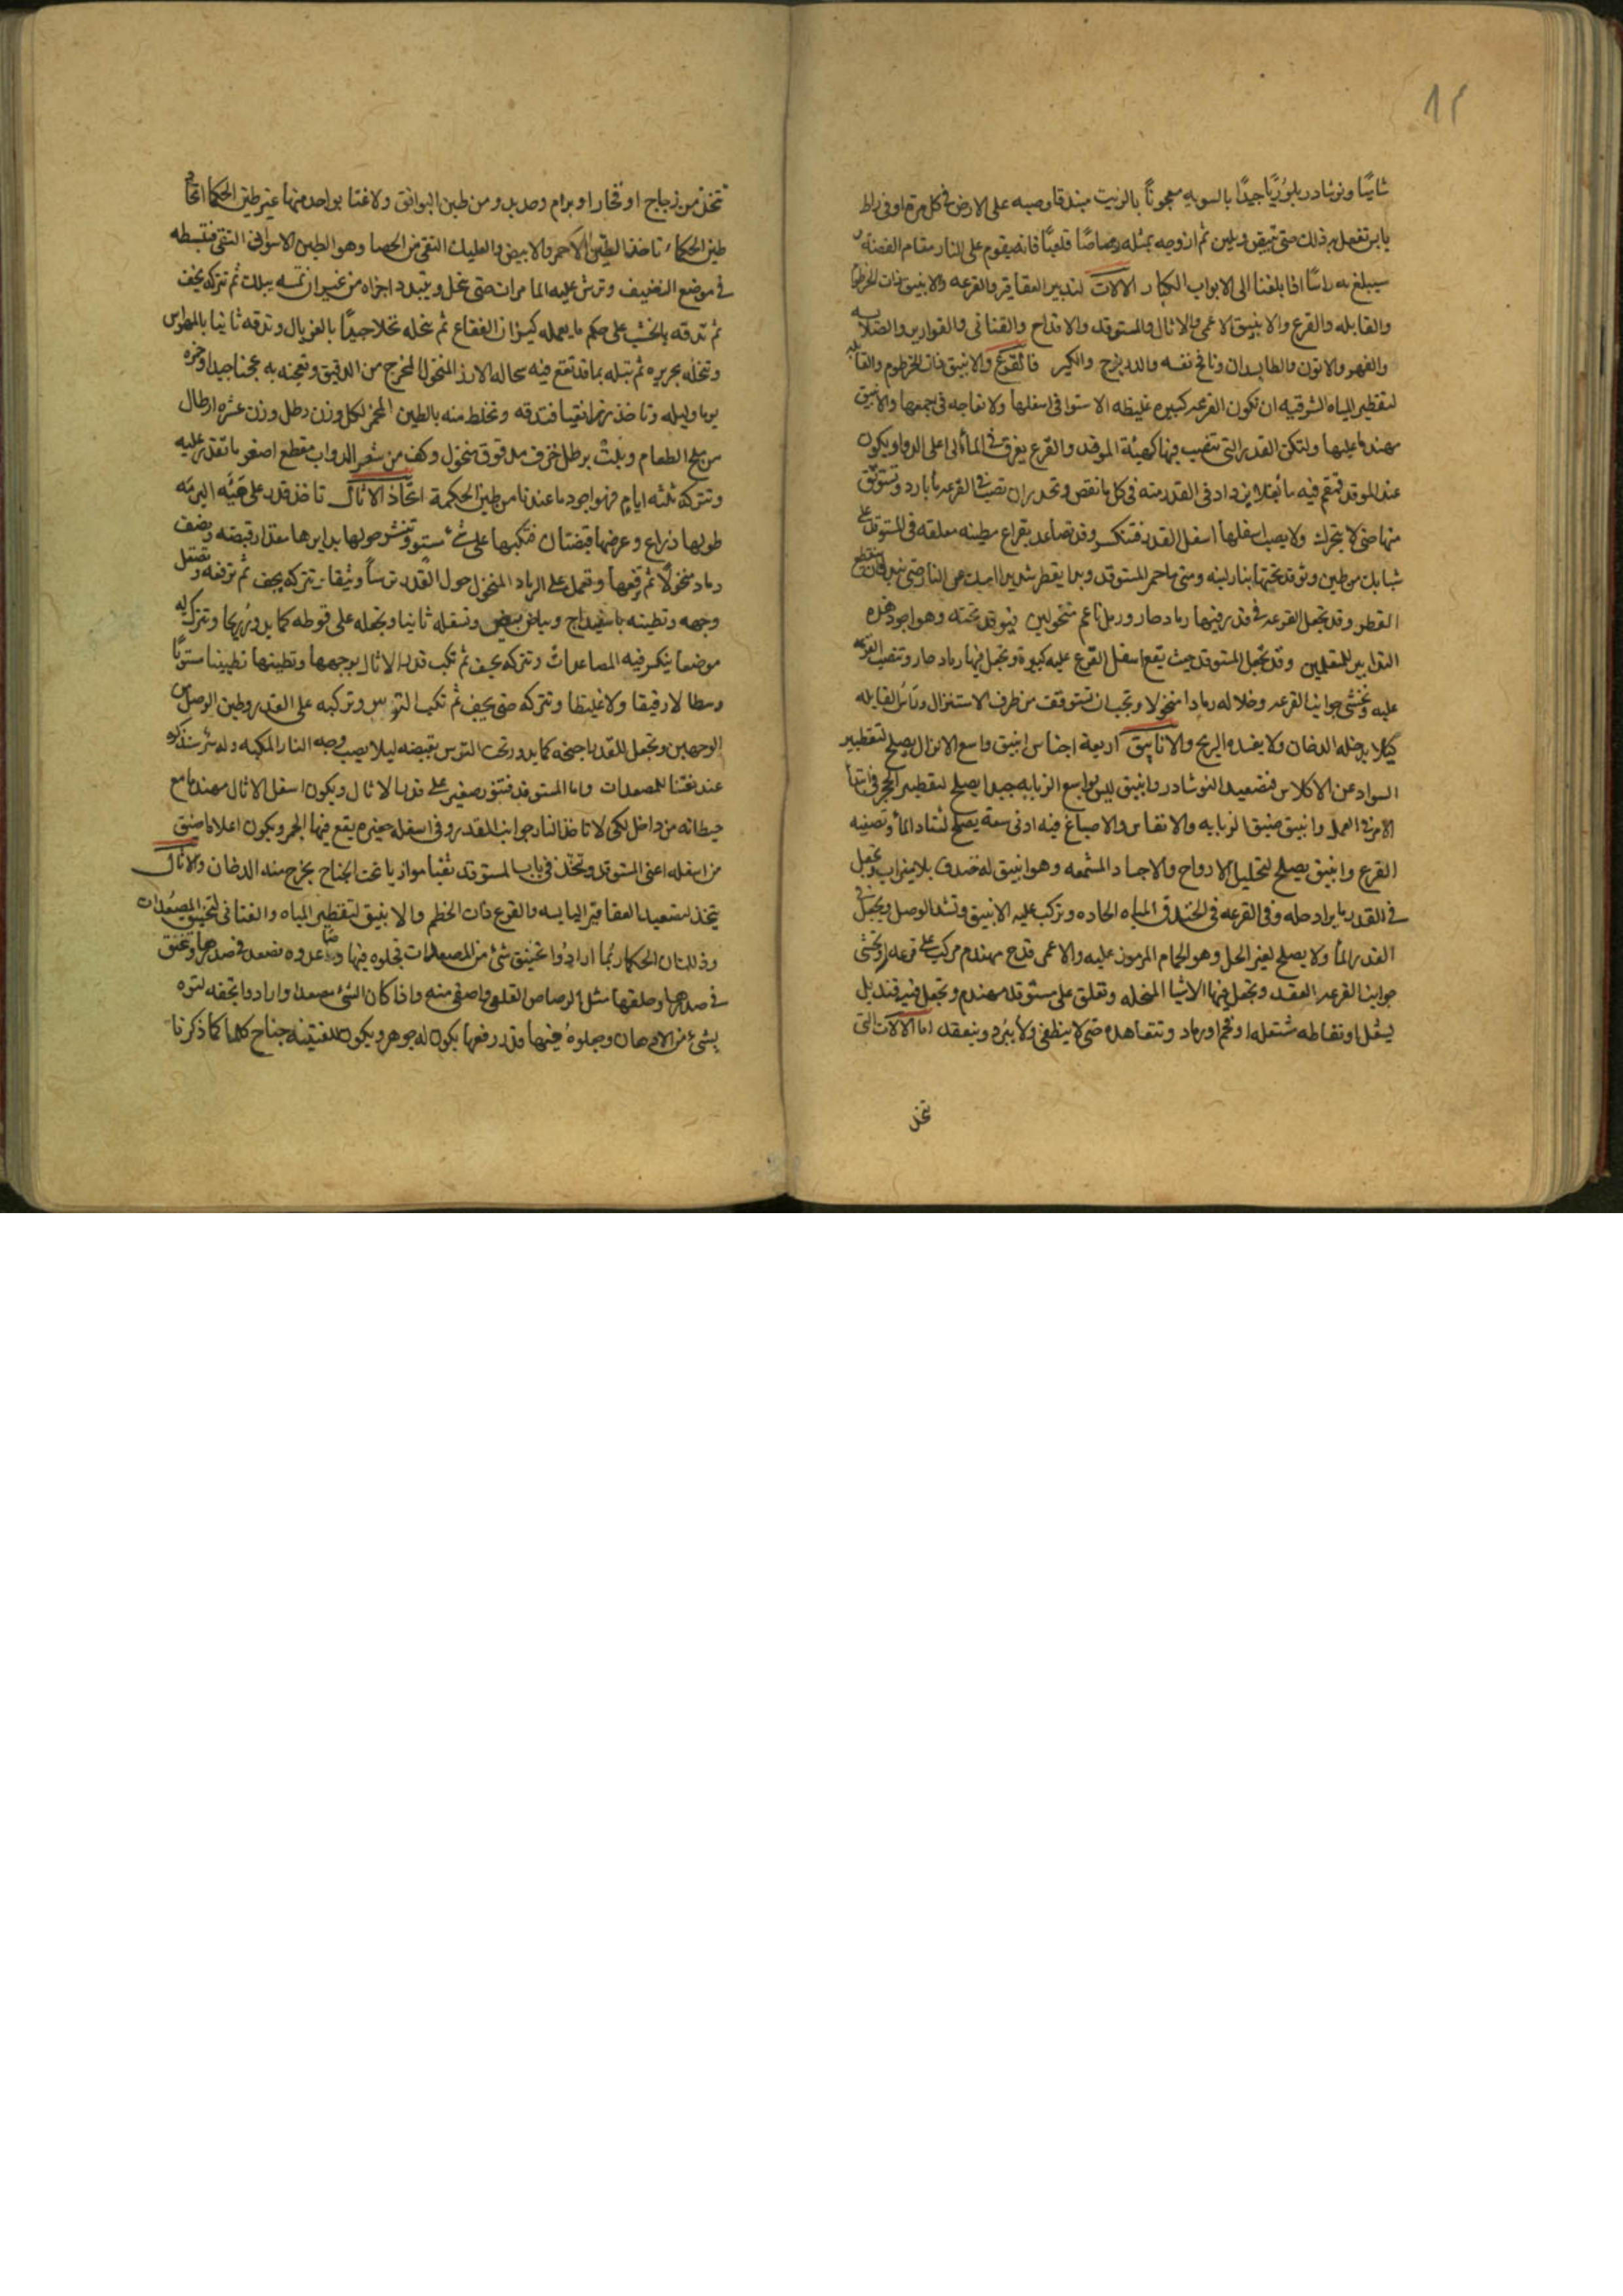 ١٢
ثانيًا ونوشادر بلوريًا جيدًا بالسويه معجونًا بالزيت مبندقا وصبه على الارض فى كل مرة او فى راط
يابر تفعل به ذلك حتى ويلين ثم ازوجه بمثله رصاصًا قلعيًا فانه يقوم على النار مقام الفضة
سيبلغ به راسًا اذا بلغنا الى الابواب الكبار الالات لتدبير العقاقير والقرعه والانبيق ذات الخرطوم
والقابله والقرع والانبيق الاعمى والاثال والمستوقد والاقداح والقنانى والقوارير والصلايه
والفهر والاتون والطابسدان ونافخ نفسه والدرج والكير فالقرع والانبيق ذات الخرطوم والقابله
لتقطير المياه الشرقيه ان تكون القرعه كبيره غليظه الاستوا فى اسفلها ولا نفاجه فى جمعها والانبيق
مهندما عليها ولتكن القدر التى تنصب فيها كهيئة الموقد والقرع يغرق فى الماء الى اعلى الدوا ويكون
عند الموقد قمقم فيه ماء يغلا يزداد فى القدر منه فى كل ما نقص وتحذر ان تصب فى القرعه ماء بارد وتستوثق
منها حتى لا يتحرك ولا يصب اسفلها اسفل القدر فتنكسر وقد تصاعد بقراع مطينه معلقه فى المستوقد على
شبابك من طين وتوقد تحتها بنار لينه ومتى ما حمر المستوقد وبدا يقطر شديدا امسك عن النار حتى
القطر وقد تجعل القرعه فى قدر فيها رماد حار ورمل ناعم منخولين فيوقد تحته وهو اجود هذه
التدابير للمتعلمين وقد تجعل المستوقد حيث يقع اسفل القرع عليه كبيرة وتجعل فيها رماد حار وتنصب القرعه
عليه وتحشى جوانب القرعه وخلاله رمادا منخولا وتجب ان تستوقفت من طرف الاستنزال وراس القابله
كيلا يدخله الدخان ولا يفسده الريح والانابيق اربعة اجناس انبيق واسع الانزال يصلح لتقطير
السواد عن الاكلاس فتصعيد النوشادر وانبيق ليس بواسع الزبابه جيدا يصلح لتقطير الحجر فى ابتدا
الامر فى العمل وانبيق ضيق الزبابه والانقاس والاصباغ فيه ادنى سعة يصلح لتشاد الماء وتصفيه
القرع وانبيق يصلح لتحليل الارواح والاجساد المشمعه وهو انبيق له خندق بلا ميزاب وتجعل
فى القدر ما يراد حله وفى القرعه فى الخندق المياه الحاده وتركب عليه الانبيق وتشد الوصل وتجعل فى
القدر الماء ولا يصلح لغير الحل وهو الحمام المرموز عليه والاعمى قدح مهندم مركب على قرعه وتحشى
جوانب القرعه العقد وتجعل فيها الاشيا المنحله وتعلق على مستوقد مهندم وتجعل فيه قنديل
يشعل او نفاطه مشتعله او فحم اورماد وتتعاهده حتى لا ينطفى ولا يبرد وينعقد اما الالات التى
تتخذ
تتخذ من زجاج او فخار او برام وحديد ومن طين البواتق ولا غنا بواحد منها عن طين الحكما اتخاذ
طين الحكماء تاخذ الطين الاحمر والابيض والعليك النقى من الحصا وهو الطين الاسوانى النقى فتبسطه
فى موضع التنظيف وترش عليه الما مرات حتى ينحل ويتبدد اجزاه من غير ان تمسه ببلل ثم تتركه يجف
ثم تدقه بالخشب على حكم ما يعمله كيزان الفقاع ثم تنخله نخلا جيدًا بالغربال وتدقه ثانيا بالمهراس
وتنخله بحريره ثم تبله بما قد نقع فيه نخاله الارز المنخول المخرج من الدقيق وتعجنه به عجنا جيدا وخمره
يوما وليله وتاخذ نقيا فتدقه وتخلط منه بالطين المخمر لكل وزن رطل وزن عشره ارطال
من ملح الطعام وثلث رطل خزف مدقوق منخول وكف من شعر الدواب مقطع اصغر ما تقدر عليه
وتتركه ثلثه ايام فهو اجود ما عندنا من طين الحكمة اتخاذ الاثال تاخذ قدر على هيئه البرمه
طولها ذراع وعرضها قبضتان فتكبها على شئ مستو وتنثر حولها بدايرها مقدار قبضه ونصف
رماد منخولا ثم ترفعها وتعمل على الرماد المنخول حول القدر ترسًا وثيقا وتتركه يجف ثم ترفعه وتصقل
وجهه وتطينه باسفيداج وبياض بيض وتصقله ثانيا وتجعله على قوطه كما يدور وتترك له
موضعا ينكسر فيه المصاعدات وتتركه يجف ثم تكب قدر الاثال بوجهها وتطينها تطيينا مستويًا
وسطا لا رقيقا ولا غليظا وتتركه حتى يجف ثم تكب الترس وتركبه على القدر وطين الوصل من
الوجهين وتجعل للقدر اجنحه كما يدور تحت الترس بقبضه ليلا يصيب وجه النار المكبه وله شرسنذكره
عند نعتنا للمصعدات واما المستوقد فتنور صغير على قدر الاثال ويكون اسفل الاثال مهندما مع
حيطانه من داخل لكى لا تاخذ النار جوانب القدر وفى اسفله حفيره يقع فيها الجمر ويكون اعلاه اضيق
من اسفله اعنى المستوقد وتتخذ فى باب المستوقد ثقبا موازيا تحت الجناح يخرج منه الدخان والاثال
يتخذ لتصعيد العقاقير اليابسه والقرع ذات الخطم والانبيق لتقطير المياه والقنانى لتخنيق المصعدات
وذلك ان الحكما ربما ارادوا تخنيق شئ من المصعدات فجلوه فيها وصاعدوه فصعد فى صدرها وتخنق
فى صدرها وحلقها مثل الرصاص القلعى واصفى منه واذا كان الشئ مصعدا وارادوا
بشئ من الادهان وجعلوه فيها وقد رفعها يكون له جوهر ويكون للقنينه جناح كلما كما ذكرنا